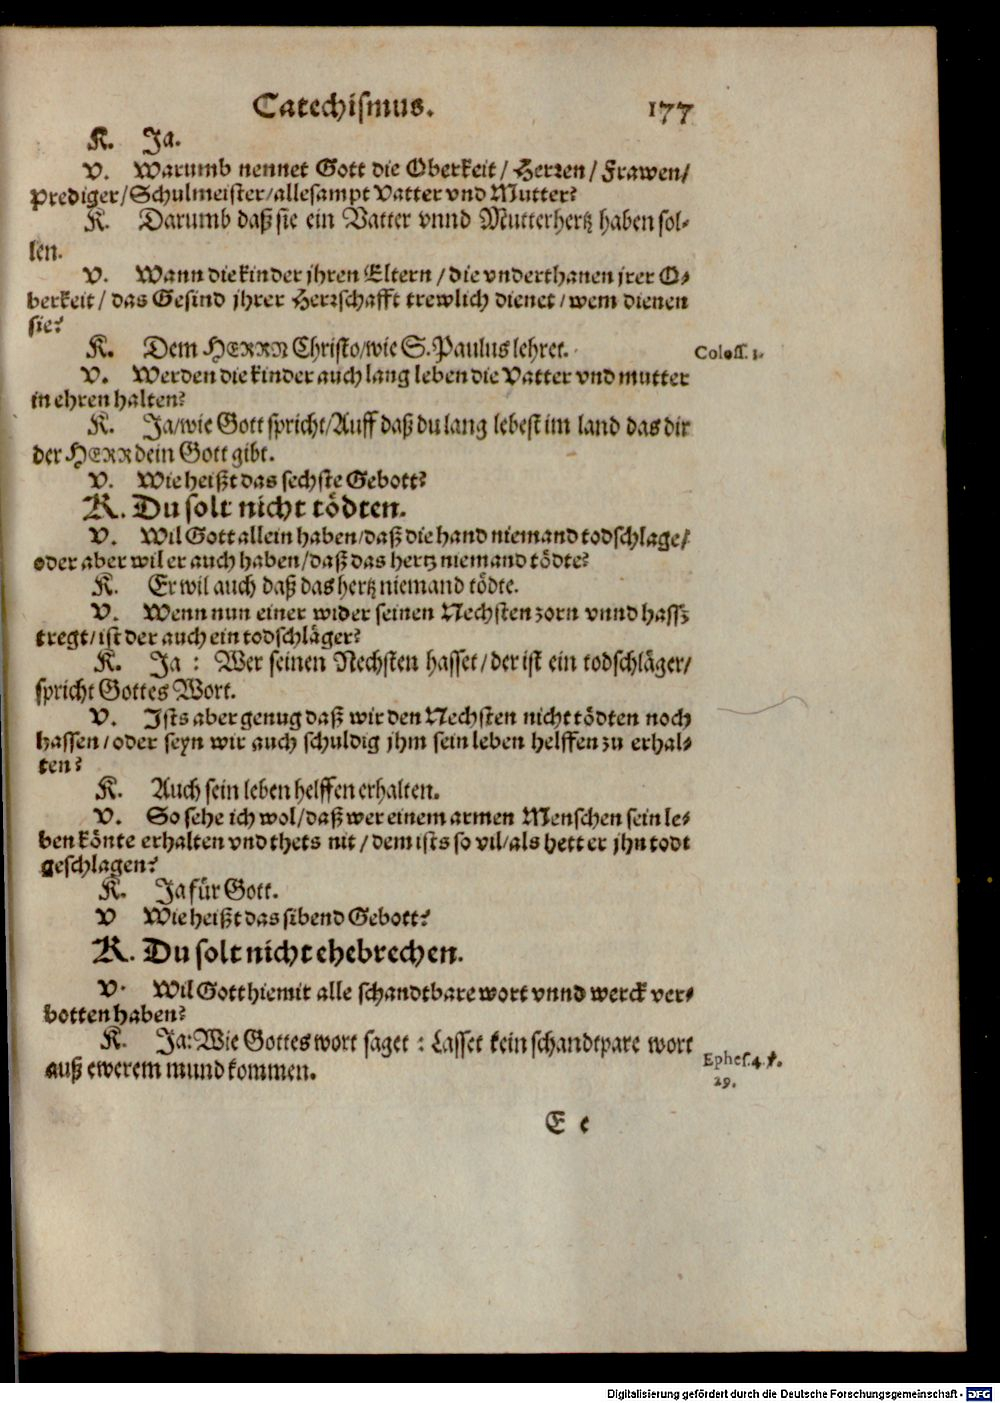 Catechismus. 177
K. Ja.
V. Warumb nennet Gott die Oberkeit / Herren / Frawen /
Prediger / Schulmeister / allesampt Vatter vnd Mutter?
K. Darumb daß sie ein Vatter vnnd Mutterhertz haben sol-
len.
V. Wann die kinder jhren Eltern / die vnderthanen jrer O-
berkeit / das Gesind jhrer Herrschafft trewlich dienet / wem dienen
sie?
K. Dem HERRN Christo / wie S. Paulus lehret.
Coloss. 3.
V. Werden die kinder auch lang leben die Vatter vnd mutter
in ehren halten?
K. Ja / wie Gott spricht / Auff daß du lang lebest im land das dir
der HERR dein Gott gibt.
V. Wie heißt das sechste Gebott?
K. Du solt nicht tödten.
V. Wil Gott allein haben / daß die hand niemand todschlage /
oder aber wil er auch haben / daß das hertz niemand tödte?
K. Er wil auch daß das hertz niemand tödte.
V. Wenn nun einer wider seinen Nechsten zorn vnnd hassz
tregt / ist der auch ein todschläger?
K. Ja : Wer seinen Nechsten hasset / der ist ein todschläger /
spricht Gottes Wort.
V. Ists aber genug daß wir den Nechsten nicht tödten noch
hassen / oder seyn wir auch schuldig jhm sein leben helffen zu erhal-
ten?
K. Auch sein leben helffen erhalten.
V. So sehe ich wol / daß wer einem armen Menschen sein le-
ben könte erhalten vnd thets nit / dem ists so vil / als hett er jhn todt
geschlagen?
K. Ja für Gott.
V Wie heißt das sibend Gebott?
K. Du solt nicht ehebrechen.
V. Wil Gott hiemit alle schandtbare wort vnnd werck ver-
botten haben?
K. Ja: Wie Gottes wort saget : Lasset kein schandtpare wort
auß ewerem mund kommen.
Ephes. 4. ℣.
29.
E e
Digitalisierung gefördert durch die Deutsche Forschungsgemeinschaft - DFG